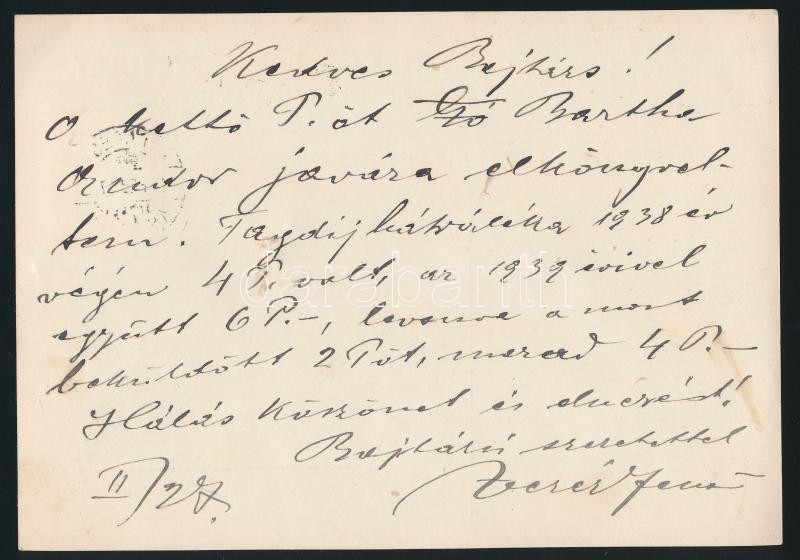 Kedves Bajtárs!
A kettő P.-öt Bartha
Andor javára elkönyvel-
tem. Tagdíjhátráléka 1938 év
végén 4 P. volt, az 1939 évivel
együtt 6 P.-, levonva a most
beküldött 2 P-t, marad 4 P.-
Hálás köszönet és elnézést!
Bajtársi szeretettel
II/27. Jenő
darabanth